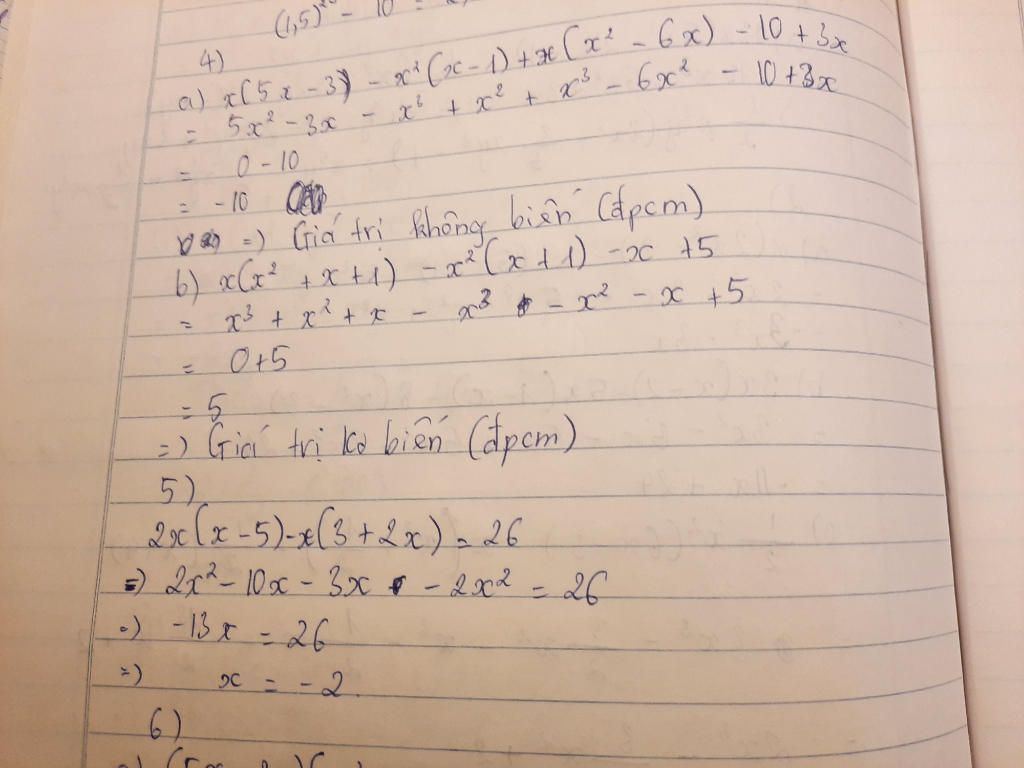 (1,5)²⁰ - 10 =
4)
a) x(5x - 3) - x²(x - 1) + x(x² - 6x) - 10 + 3x
= 5x² - 3x - x³ + x² + x³ - 6x² - 10 + 3x
= 0 - 10
= -10
=) Giá trị không biến (đpcm)
b) x(x² + x + 1) - x²(x + 1) - x + 5
= x³ + x² + x - x³ - x² - x + 5
= 0 + 5
= 5
=) Giá trị ko biến (đpcm)
5)
2x(x - 5) - x(3 + 2x) = 26
=) 2x² - 10x - 3x - 2x² = 26
=) -13x = 26
=) x = -2.
6)